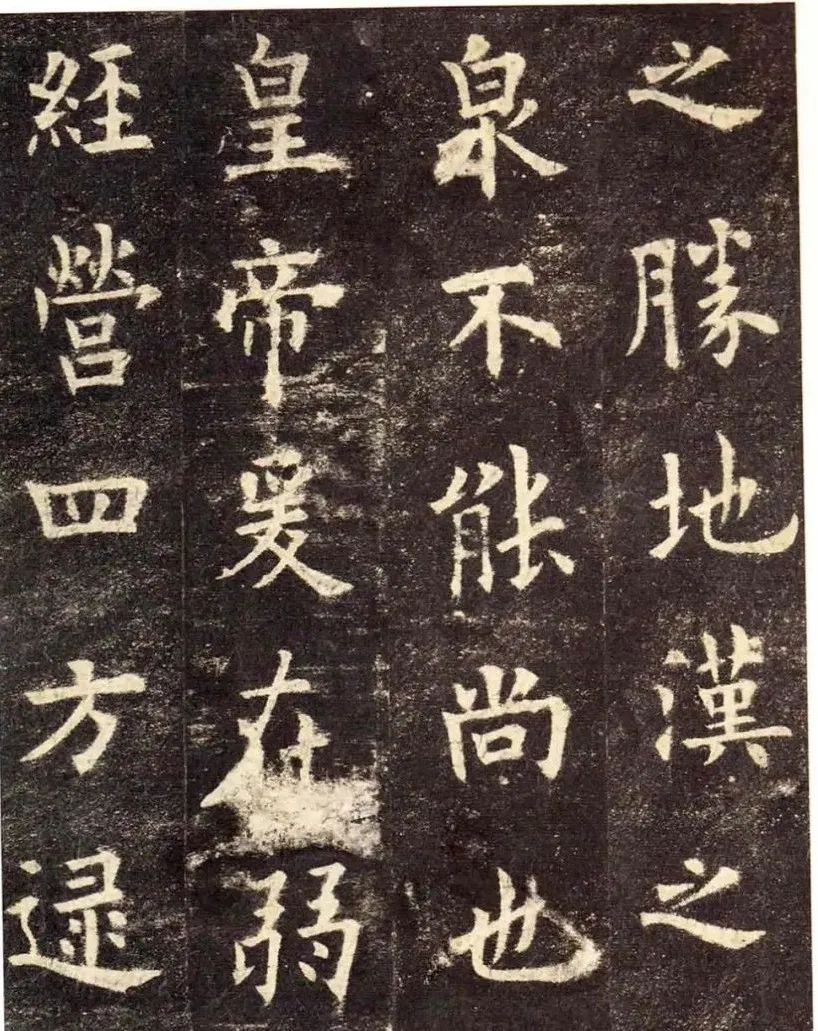 之勝地漢之
泉不能尚也
皇帝爰在弱
經營四方逮